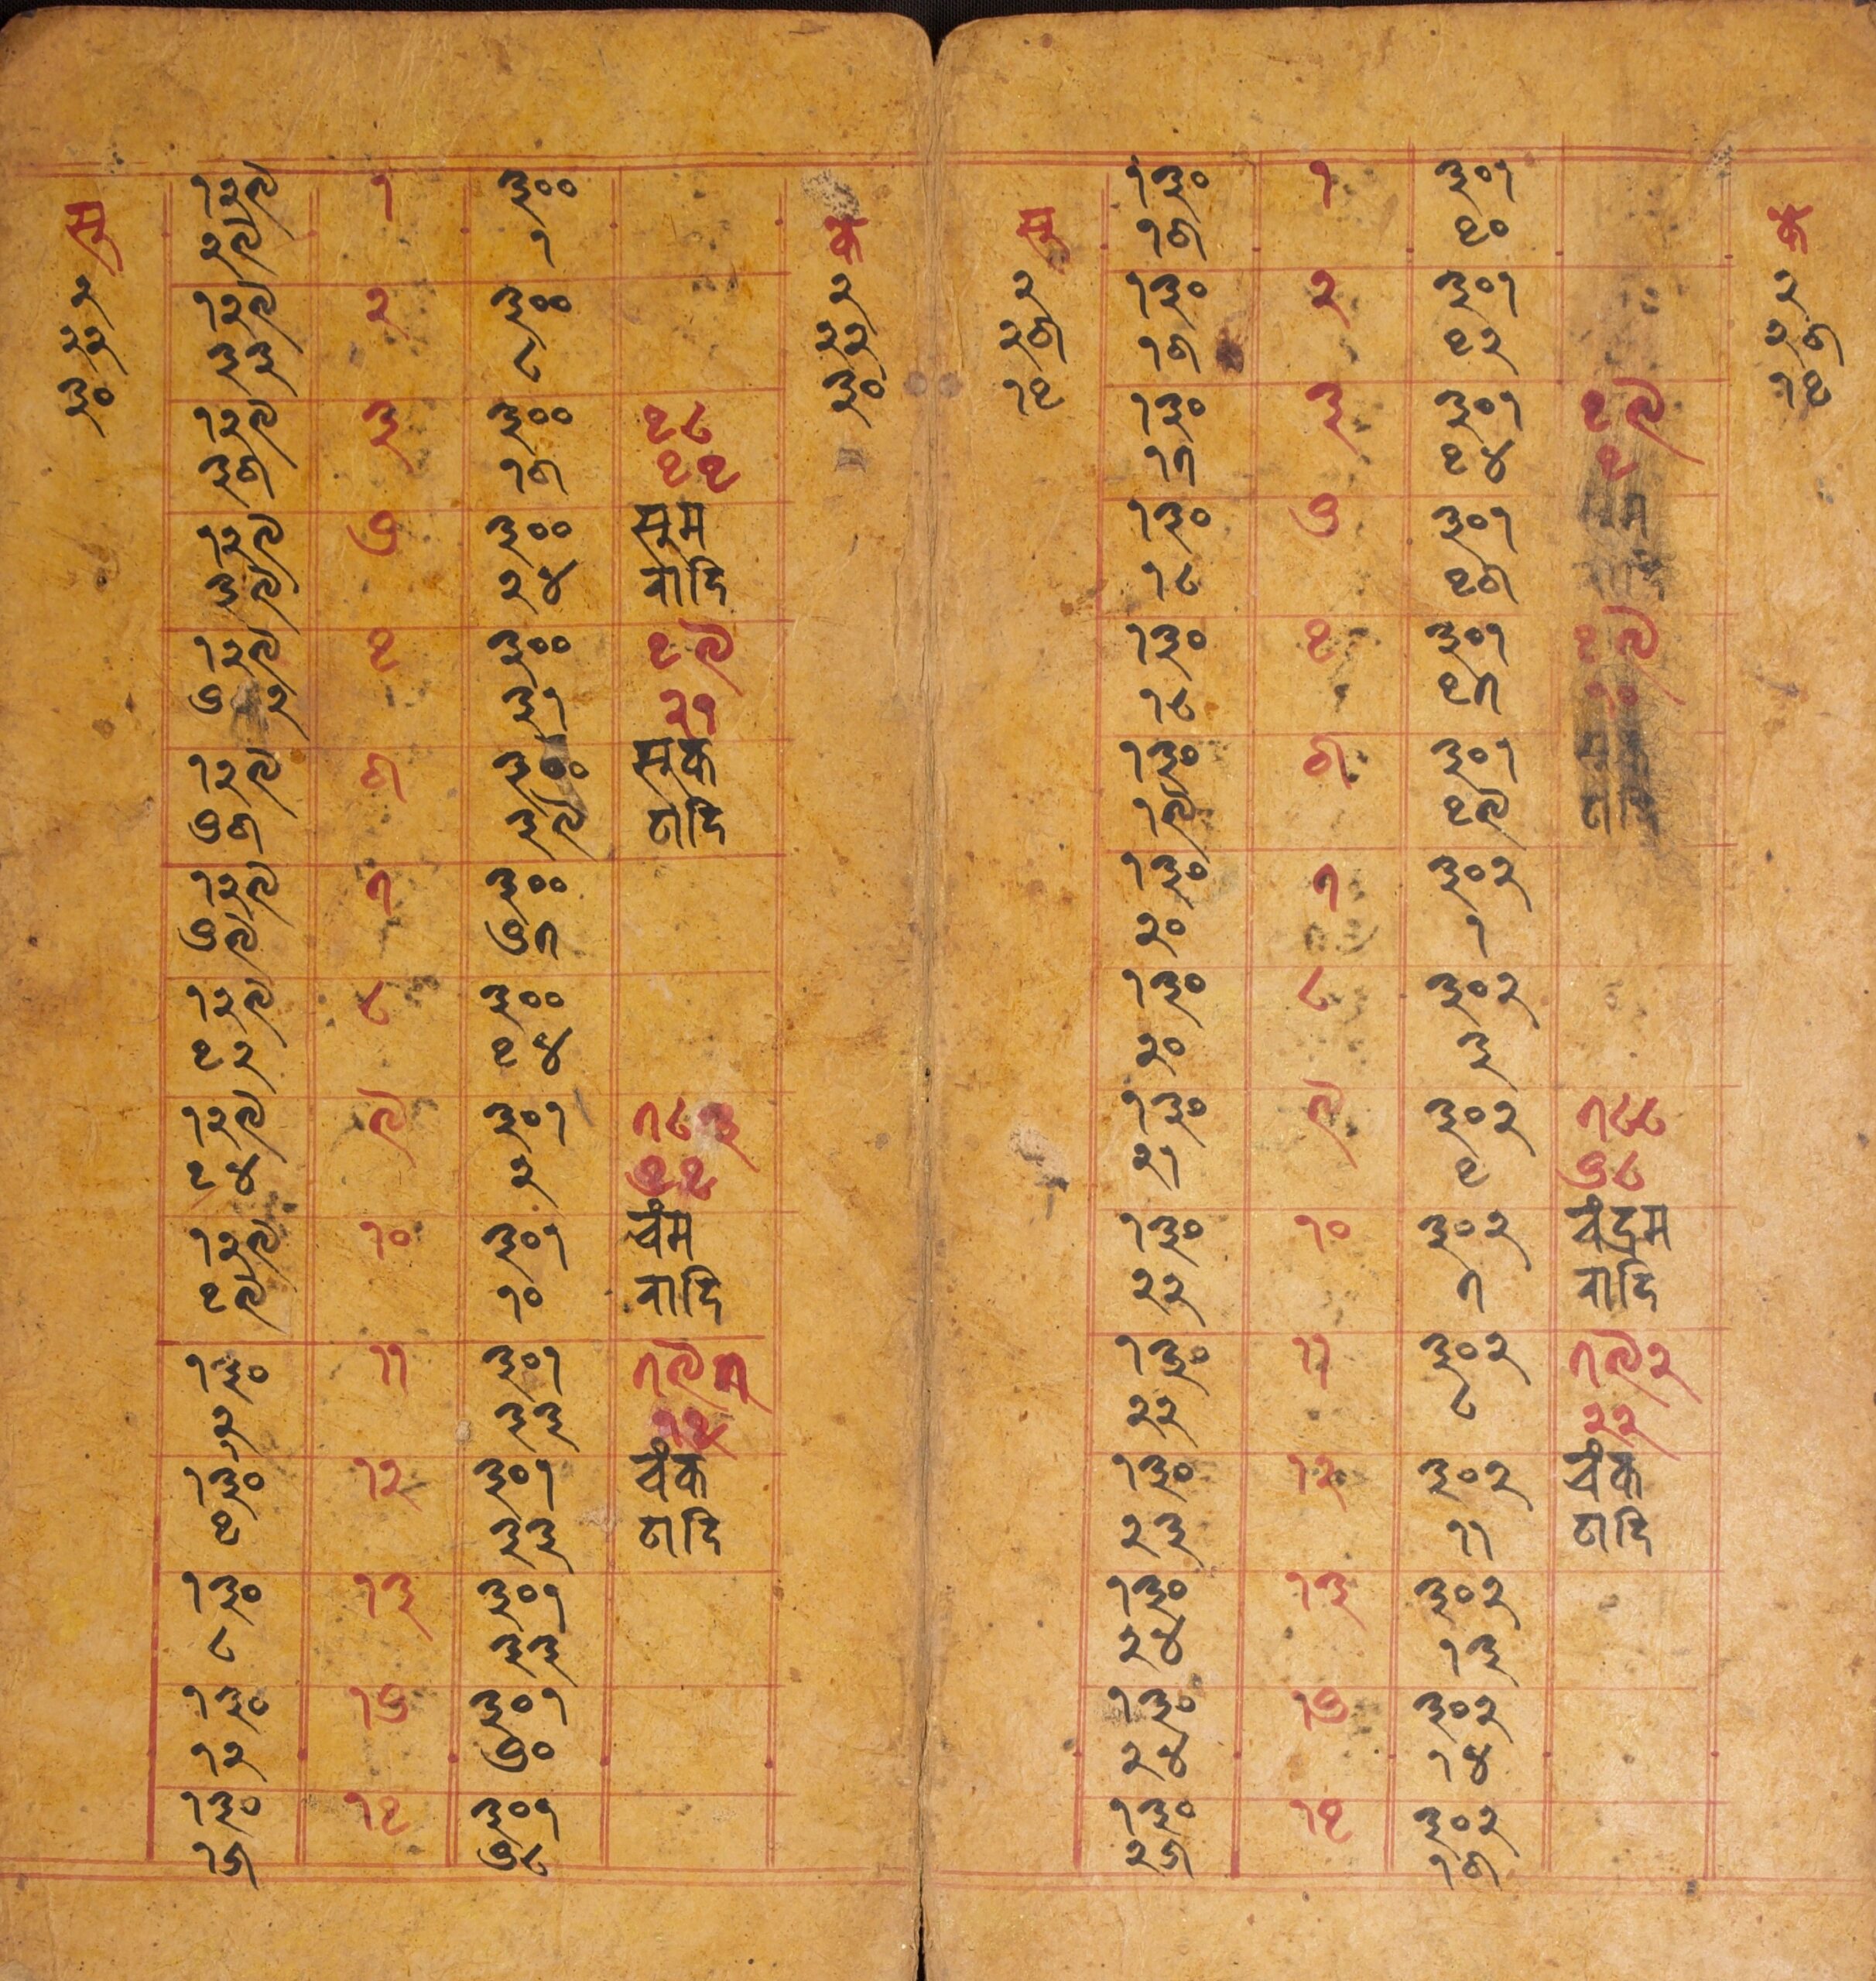 सू
२
२२
३०
१२९ १ ३००
२९ १
१२९ २ ३००
३३ ८
१२९ ३ ३०० ५८
३६ १६ ५५
१२९ ४ ३०० सूम
३९ २४ वादि
१२९ ५ ३०० ५९
४२ ३१ २१
१२९ ६ ३०० सूक
४६ ३९ ठादि
१२९ ७ ३००
४९ ४७
१२९ ८ ३००
५२ ५४
१२९ ९ ३०१ ७८३
५४ २
१२९ १० ३०१ चंम
५९ १० वादि
१३० ११ ३०१ ७९७
२ ३३
१३० १२ ३०१ चंक
५ ३३ ठादि
१३० १३ ३०१
८ ३३
१३० १४ ३०१
१२ ४०
१३० १५ ३०१
१६ ४८
क
२
२२
३०
सू
२
२६
१५
१३० १ ३०१
१६ ५०
१३० २ ३०१
१६ ५२
१३० ३ ३०१ ५९
१७ ५४ ५
१३० ४ ३०१
१८ ५६
१३० ५ ३०१ ५९
१८ ५७ १०
१३० ६ ३०१
१९ ५९ ठादि
१३० ७ ३०२
२० १
१३० ८ ३०२
२० ३
१३० ९ ३०२ ७८८
२१ ५ ४८
१३० १० ३०२ चंद्रम
२२ ७ वादि
१३० ११ ३०२ ७९२
२२ ८ २२
१३० १२ ३०२ चंक
२३ ११ ठादि
१३० १३ ३०२
२४ १३
१३० १४ ३०२
२४ १४
१३० १५ ३०२
२६ १६
क
२
२६
१५